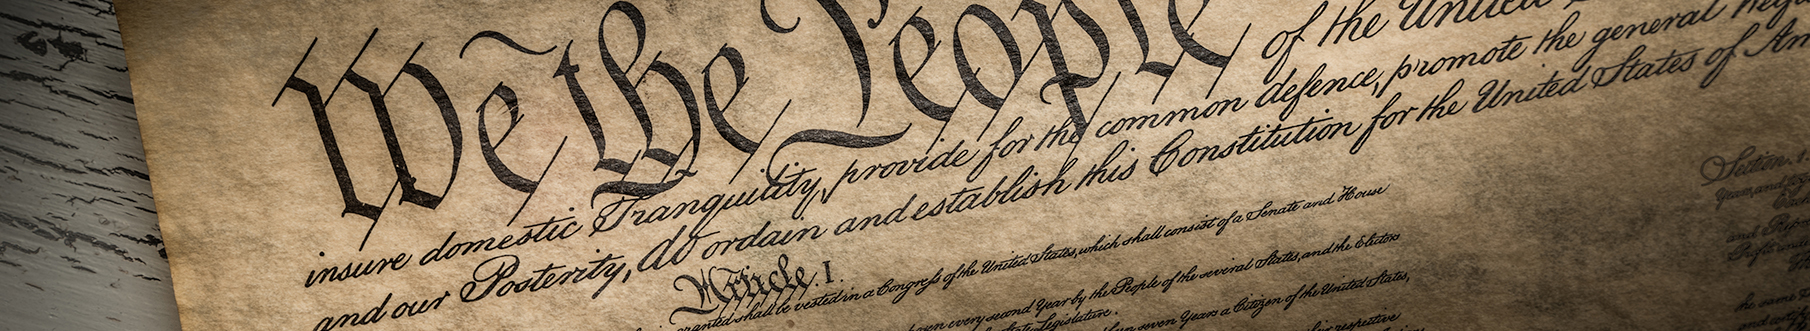 We the People of the United
insure domestic Tranquility, provide for the common defence, promote the general
and our Posterity, do ordain and establish this Constitution for the United States of Am
Article. I.
granted shall be vested in a Congress of the United States, which shall consist of a Senate and House
every second Year by the People of the several States, and the Electors
State Legislature.
seven Years a Citizen of the United States,
respective
Section.
the same